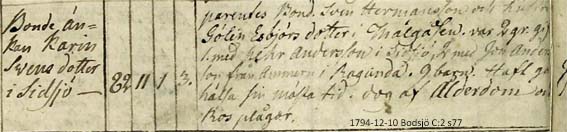 Bonde än-
kan Karin
Svens dotter
i Sidsjö —
82 11 1 3.
parentes Bond. Sven Hermansson och hustru
Gölin Esbjörs dotter i Thälgåsen. var 2 gr. gift
1. med Pehr Anderson i Sidsjö, 2 med Jon Anders
son från Ammern i Ragunda. 9 barn. Haft go
hälsa sin mästa tid. dog af Ålderdom
Kos plågor.
1794-12-10 Bodsjö C:2 s77